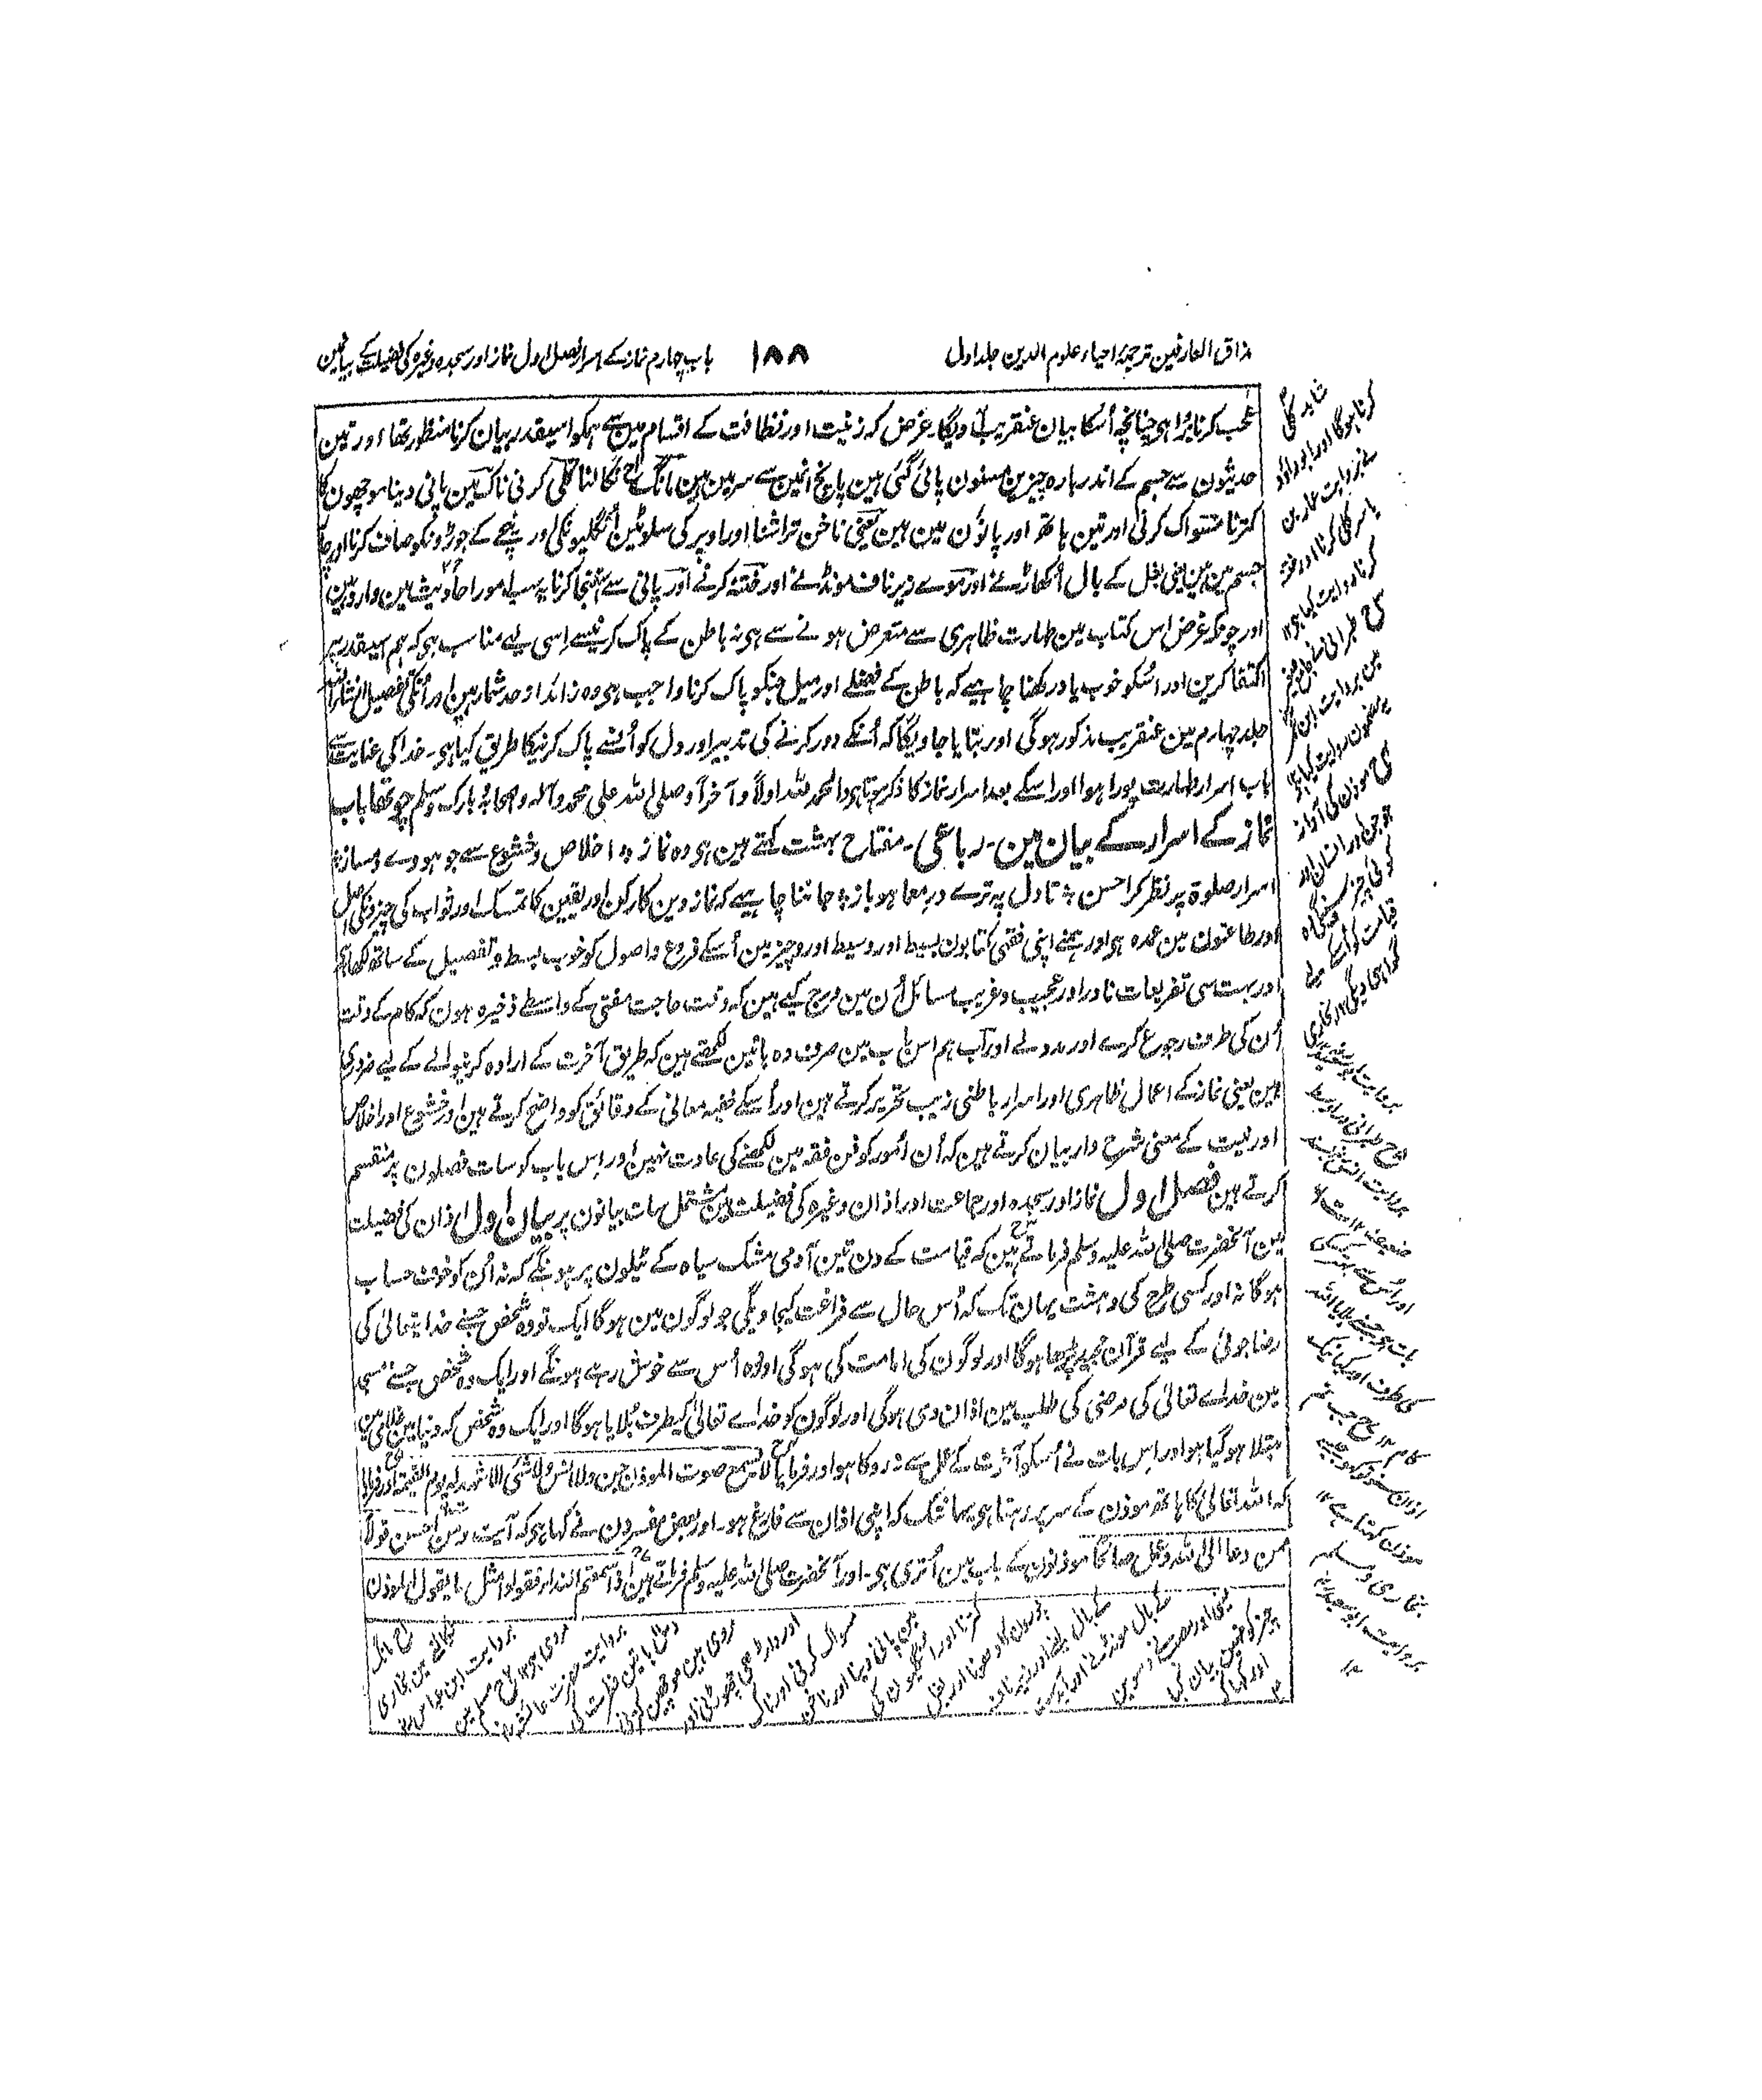 مذاق العارفین ترجمۂ احیاء علوم الدین جلد اول
۱۸۸
باب چہارم نماز کے اسرار فصل اول نماز اور سجدہ وغیرہ کی فضیلت کے بیانمین
عجب کرنا بُرا ہی چنانچہ اُسکا بیان عنقریب آویگا۔ غرض کہ زینت اور نظافت کے اقسام مین سے ہمکو اسیقدر بیان کرنا منظور تھا اور تین
حدیثون سے جسم کے اندر بارہ چیزین مسنون پائی گئی ہین پانچ انمین سے سر مین ہین مانگ نکالنا کلی کرنی ناک مین پانی دینا موچھون کا
کترنا مسواک کرنی اور تین ہاتھ اور پانوُن مین ہین یعنی ناخن تراشنا اور اوپر کی سلوٹین اُنگلیونکی اور نیچے کے جوڑونکو صاف کرنا اور چار
جسم مین ہین یعنی بغل کے بال اُکھاڑنے اور موے زیر ناف مونڈنے اور ختنہ کرنے اور پانی سے استنجا کرنا یہ سب امور احادیث مین وارد ہین
اور چونکہ غرض اس کتاب مین طہارت ظاہری سے متعرض ہونے سے ہی نہ باطن کے پاک کرنیسے اِسی لیے مناسب ہی کہ ہم اسیقدر پر
اکتفا کرین اور اسکو خوب یاد رکھنا چاہیے کہ باطن کے فضلے اور میل جنکو پاک کرنا واجب ہی وہ زائد از حد شمار ہین اور اُنکی تفصیل انشاء اللہ
جلد چہارم مین عنقریب مذکور ہوگی اور بتایا جاویگا کہ اُنکے دور کرنے کی تدبیر اور دل کو اُنسے پاک کرنیکا طریق کیا ہی۔ خدا کی عنایت سے
باب اسرار طہارت پورا ہوا اور اسکے بعد اسرار نماز کا ذکر ہوتا ہی والحمد للہ اولاً و آخراً وصلی اللہ علی محمد وآلہ وصحابہ وبارک وسلم چوتھا باب
نماز کے اسرار کے بیان مین۔ رباعی۔ مفتاح بہشت کہتے ہین ہی وہ نماز ؞ اخلاص و خشوع سے جو ہووے دمساز ؞
اسرار صلوٰۃ پر نظر کر احسن ؞ تا دل پہ ترے در معا ہو باز ؞ جاننا چاہیے کہ نماز دین کا رکن اور یقین کا تمسک اور ثواب کی چیزونکی اصل
اور طاعتون مین عمدہ ہی اور ہمنے اپنی فقہی کتابون بسیط اور وسیط اور وجیز مین اُسکے فروع واصول کو خوب بسط و تفصیل کے ساتھ لکھا ہی
اور بہت سی تفریعات نادر اور عجیب و غریب مسائل اُن مین درج کیے ہین کہ وقت حاجت مفتی کے واسطے ذخیرہ ہون کہ کام کے وقت
اُن کی طرف رجوع کرے اور مدد لے اور اب ہم اس باب مین صرف وہ باتین لکھتے ہین کہ طریق آخرت کے ارادہ کرنیوالے کے لیے ضروری
ہین یعنی نماز کے اعمال ظاہری اور اسرار باطنی زیب تحریر کرتے ہین اور اُسکے خفیہ معانی کے دقائق کو واضح کرتے ہین اور خشوع اور اخلاص
اور نیت کے معنی شرح وار بیان کرتے ہین کہ اُن اُمور کو فن فقہ مین لکھنے کی عادت نہین اور اِس باب کو سات فصلون پر منقسم
کرتے ہین فصل اول نماز اور سجدہ اور جماعت اور اذان وغیرہ کی فضیلت مین مشتمل سات بیانون پر بیان اول اذان کی فضیلت
مین آنحضرت صلی اللہ علیہ وسلم فرماتے ہین کہ قیامت کے دن تین آدمی مشک سیاہ کے ٹیلون پر ہونگے کہ نہ اُن کو خوف حساب
ہوگا نہ اور کسی طرح کی دہشت یہان تک کہ اُس حال سے فراغت کیجاویگی جو لوگون مین ہوگا ایک تو وہ شخص جسنے خدایتعالیٰ کی
رضا جوئی کے لیے قرآن مجید پڑھا ہوگا اور لوگون کی امامت کی ہوگی اور وہ اُس سے خوش رہے ہونگے اور ایک وہ شخص جسنے مسجد
مین خداے تعالیٰ کی مرضی کی طلب مین اذان دی ہوگی اور لوگون کو خداے تعالیٰ کیطرف بُلایا ہوگا اور ایک وہ شخص کہ دنیا مین غلامی مین
مبتلا ہو گیا ہو اور اِس بات نے اُسکو آخرت کے عمل سے نہ روکا ہو اور فرمایا لا یسمع صوت الموذن جن ولا انس ولا شئی الا شہد لہ یوم القیمۃ اور فرمایا
کہ اللہ تعالیٰ کا ہاتھ موذن کے سر پر رہتا ہی یہانتک کہ اپنی اذان سے فارغ ہو۔ اور بعض مفسرون نے کہا ہی کہ آیت ومن احسن قولاً
ممن دعا الی اللہ وعمل صالحاً موذنون کے باب مین اُتری ہی۔ اور آنحضرت صلی اللہ علیہ وسلم فرماتے ہین اذا سمعتم النداء فقولوا مثل ما یقول الموذن
شاید کلی
کرنا ہوگا اور ابو داؤد
نے بروایت عمار بن
یاسر کلی کرنا اور ختنہ
کرنا روایت کیا ہی ۱۲
طبرانی نے
مین بروایت ابن عمر
یہ مضمون روایت کیا ہی ۱۲
موذن کی آواز
جو جن اور انسان اور
کوئی چیز سنیگی وہ
قیامت کو اُسکے لیے
گواہی دیگی ۱۲ بخاری
بروایت ابو سعید
طبرانی در اوسط
بروایت انس بسند
ضعیف ۱۲
اور اُس سے بہتر کسکی
بات ہی جسنے بلایا اللہ
کی طرف اور کیا نیک
کام ۱۲ جب تم
اذان سنو تو کہو جیسے
موذن کہتا ہے ۱۲
بخاری و مسلم
بروایت ابو سعید
۱۲
مانگ
نکالنے مین بخاری
بروایت ابن عباس
مروی ہی ۱۲ مسلم مین
بروایت حضرت عائشہ
دس باتین فطرت کی
مروی ہین موچھین کترنی
اور داڑھی چھوڑنی اور
مسواک کرنی اور ناک
مین پانی دینا اور ناخن
کترنا اور انگلیون کی
پورون کا دھونا اور بغل
کے بال لینے اور زیر ناف
کے بال مونڈنے اور
چیز کو نہین بیان کیا
اور کہا کہ